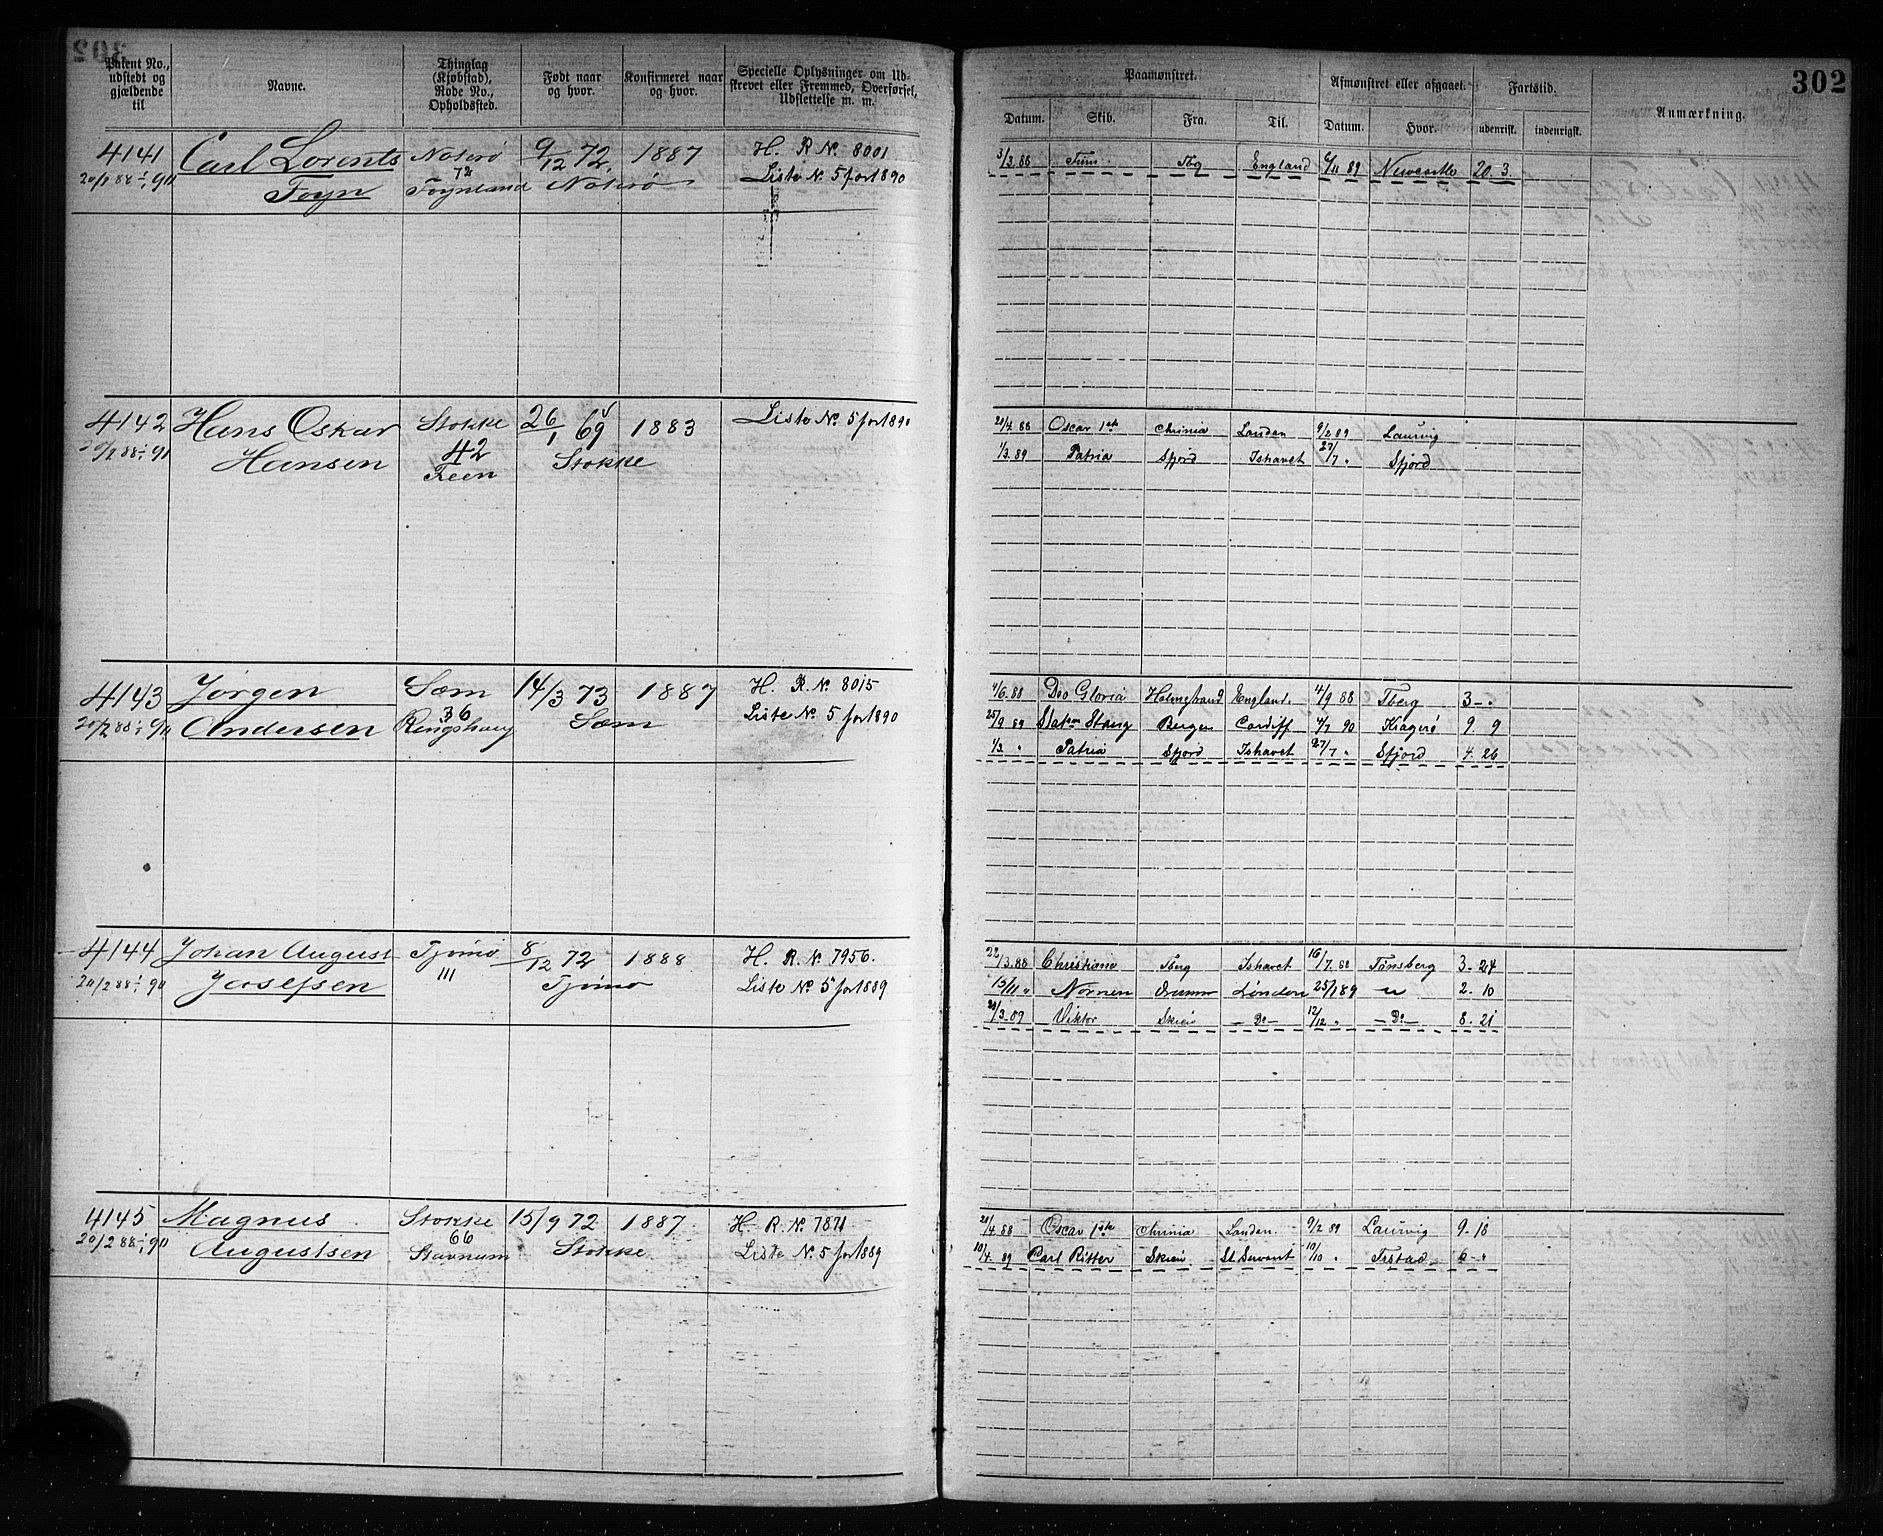 302
Patent No., udstedt og gjældende til
Navne.
Thinglag (Kjøbstad), Rode No., Opholdssted.
Født naar og hvor.
Konfirmeret naar og hvor.
Specielle Oplysninger om Udskrevet eller Fremmed, Overførsel, Udslettelse m. m.
Paamønstret.
Afmønstret eller afgaaet.
Fartstid.
Anmærkning.
Datum. Skib. Fra. Til. Datum. Hvor. udenrisk. indenrigsk.
4141 Carl Lorents Nøterø 9/12 72 1887 H. R. No. 8001
20/2 88 - 1/1 91 Foyn 72 Foynland Nøterø Liste No. 5 for 1890
3/3.88 Tbg England 6/11 89 Newcastle 20. 3.
4142 Hans Oskar Stokke 26/1 69 1883 Liste No. 5 for 1890
20/2 88 - 1/1 91 Hansen 42 Feen Stokke
20/4 88 Oscar 1ste Chrinia London 9/2 89 Laurvig
1/3. 89 Patria Sfjord Ishavet 27/7 " Sfjord
4143 Jørgen Sæm 14/3 73 1887 H. R. No. 8015
20/2 88 - 1/1 91 Andersen 36 Ringshaug Sæm Liste No. 5 for 1890
/6.88 Deo Gloria Holmestrand England. 4/9 88 Tberg 3 - "
25/9 89 Statsm Stang Bergen Cardiff 4/7 90 Kragerø 9. 9
1/3 " Patria Sfjord Ishavet 27/7 " Sfjord 4. 26
4144 Johan August Tjømø 8/12 72 1888 H. R. No. 7956.
20/2 88 - 1/1 91 Josefsen 111 Tjømø Liste No. 5 for 1889
22/3.88 Christiane Tberg Ishavet 16/7.88 Tønsberg 3. 24
15/11 " Nornen Dramm London 25/1 89 " 2. 10
20/3.89 Viktor Skien - Do - 12/12 " - Do - 8. 21
4145 Magnus Stokke 15/9 72 1887. H. R. No 7871
20/2 88 - 1/1 91 Augustsen 66 Stavnum Stokke Liste No. 5 for 1889
20/4.88 Oscar 1ste Chrinia London 9/2 89 Laurvig 9. 18
10/4. 89 Carl Ritter Skien St. Servant 10/10 " Frstad 6 - "